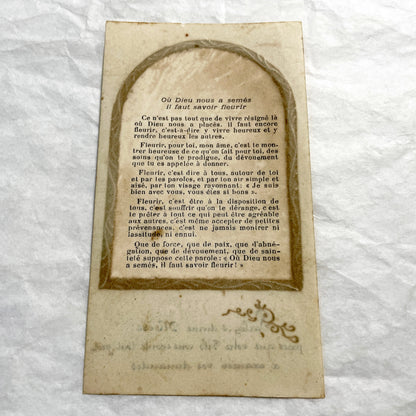 Où Dieu nous a semés
il faut savoir fleurir
Ce n'est pas tout que de vivre résigné là
où Dieu nous a placés, il faut encore
fleurir, c'est-à-dire y vivre heureux et y
rendre heureux les autres.
Fleurir, pour toi, mon âme, c'est te mon-
trer heureuse de ce qu'on fait pour toi, des
soins qu'on te prodigue, du dévouement
que tu es appelée à donner.
Fleurir, c'est dire à tous, autour de toi
et par tes paroles, et par ton air simple et
aisé, par ton visage rayonnant: « Je suis
bien avec vous, vous êtes si bons ».
Fleurir, c'est être à la disposition de
tous, c'est souffrir qu'on te dérange, c'est
te prêter à tout ce qui peut être agréable
aux autres, c'est même accepter de petites
prévenances, c'est ne jamais montrer ni
lassitude, ni ennui.
Que de force, que de paix, que d'abné-
gation, que de dévouement, que de sain-
teté suppose cette parole: « Où Dieu nous
a semés, il faut savoir fleurir! »